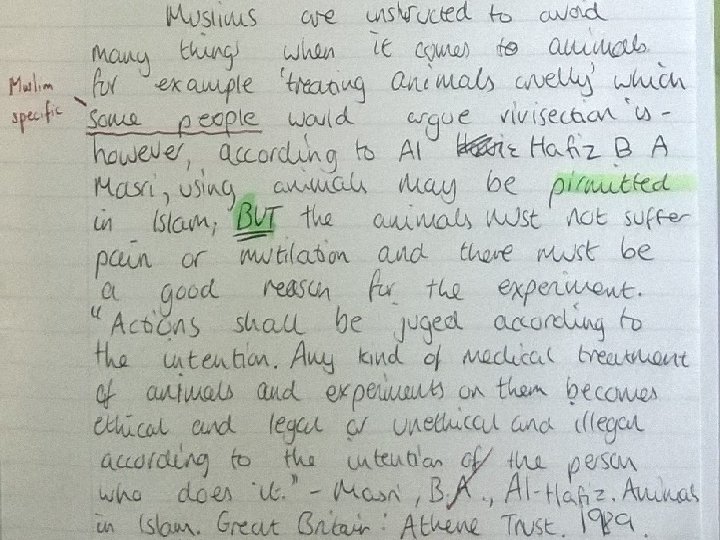 Muslims are instructed to avoid
many things when it comes to animals
for example 'treating animals cruelly' which
Muslim
specific
some people would argue vivisection is -
however, according to Al Hafiz B A
Masri, using animals may be pirmitted
in Islam, BUT the animals must not suffer
pain or mutilation and there must be
a good reason for the experiment.
"Actions shall be juged according to
the intention. Any kind of medical treatment
of animals and experiments on them becomes
ethical and legal or unethical and illegal
according to the intention of the person
who does it." - Masri, B.A., Al-Hafiz. Animals
in Islam. Great Britain: Athene Trust. 1989.